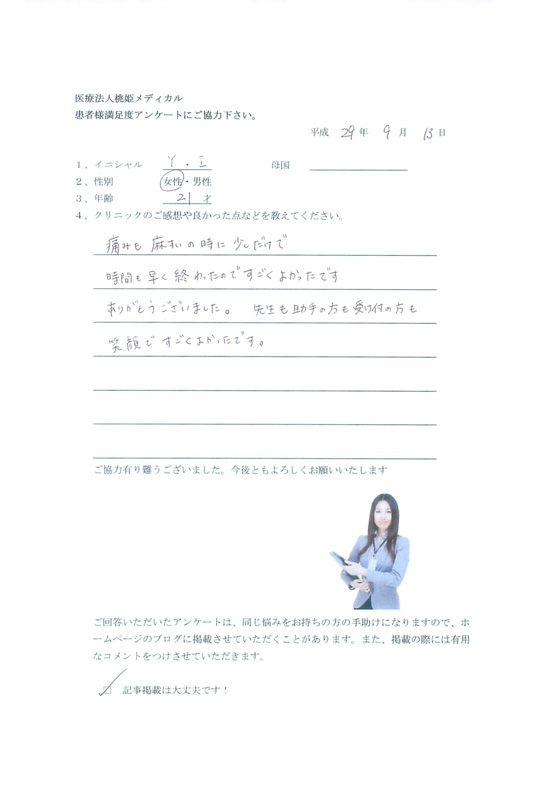 医療法人桃姫メディカル
患者様満足度アンケートにご協力下さい。
平成 29 年 9 月 13 日
1、イニシャル Y . I 母国
2、性別 女性・男性
3、年齢 21 才
4、クリニックのご感想や良かった点などを教えてください。
痛みも 麻すいの時に 少しだけで
時間も早く終わったのですごくよかったです
ありがとうございました。 先生も助手の方も受け付の方も
笑顔で すごくよかったです。
ご協力有り難うございました。今後ともよろしくお願いいたします
ご回答いただいたアンケートは、同じ悩みをお持ちの方の手助けになりますので、ホ
ームページのブログに掲載させていただくことがあります。また、掲載の際には有用
なコメントをつけさせていただきます。
☑ 記事掲載は大丈夫です！